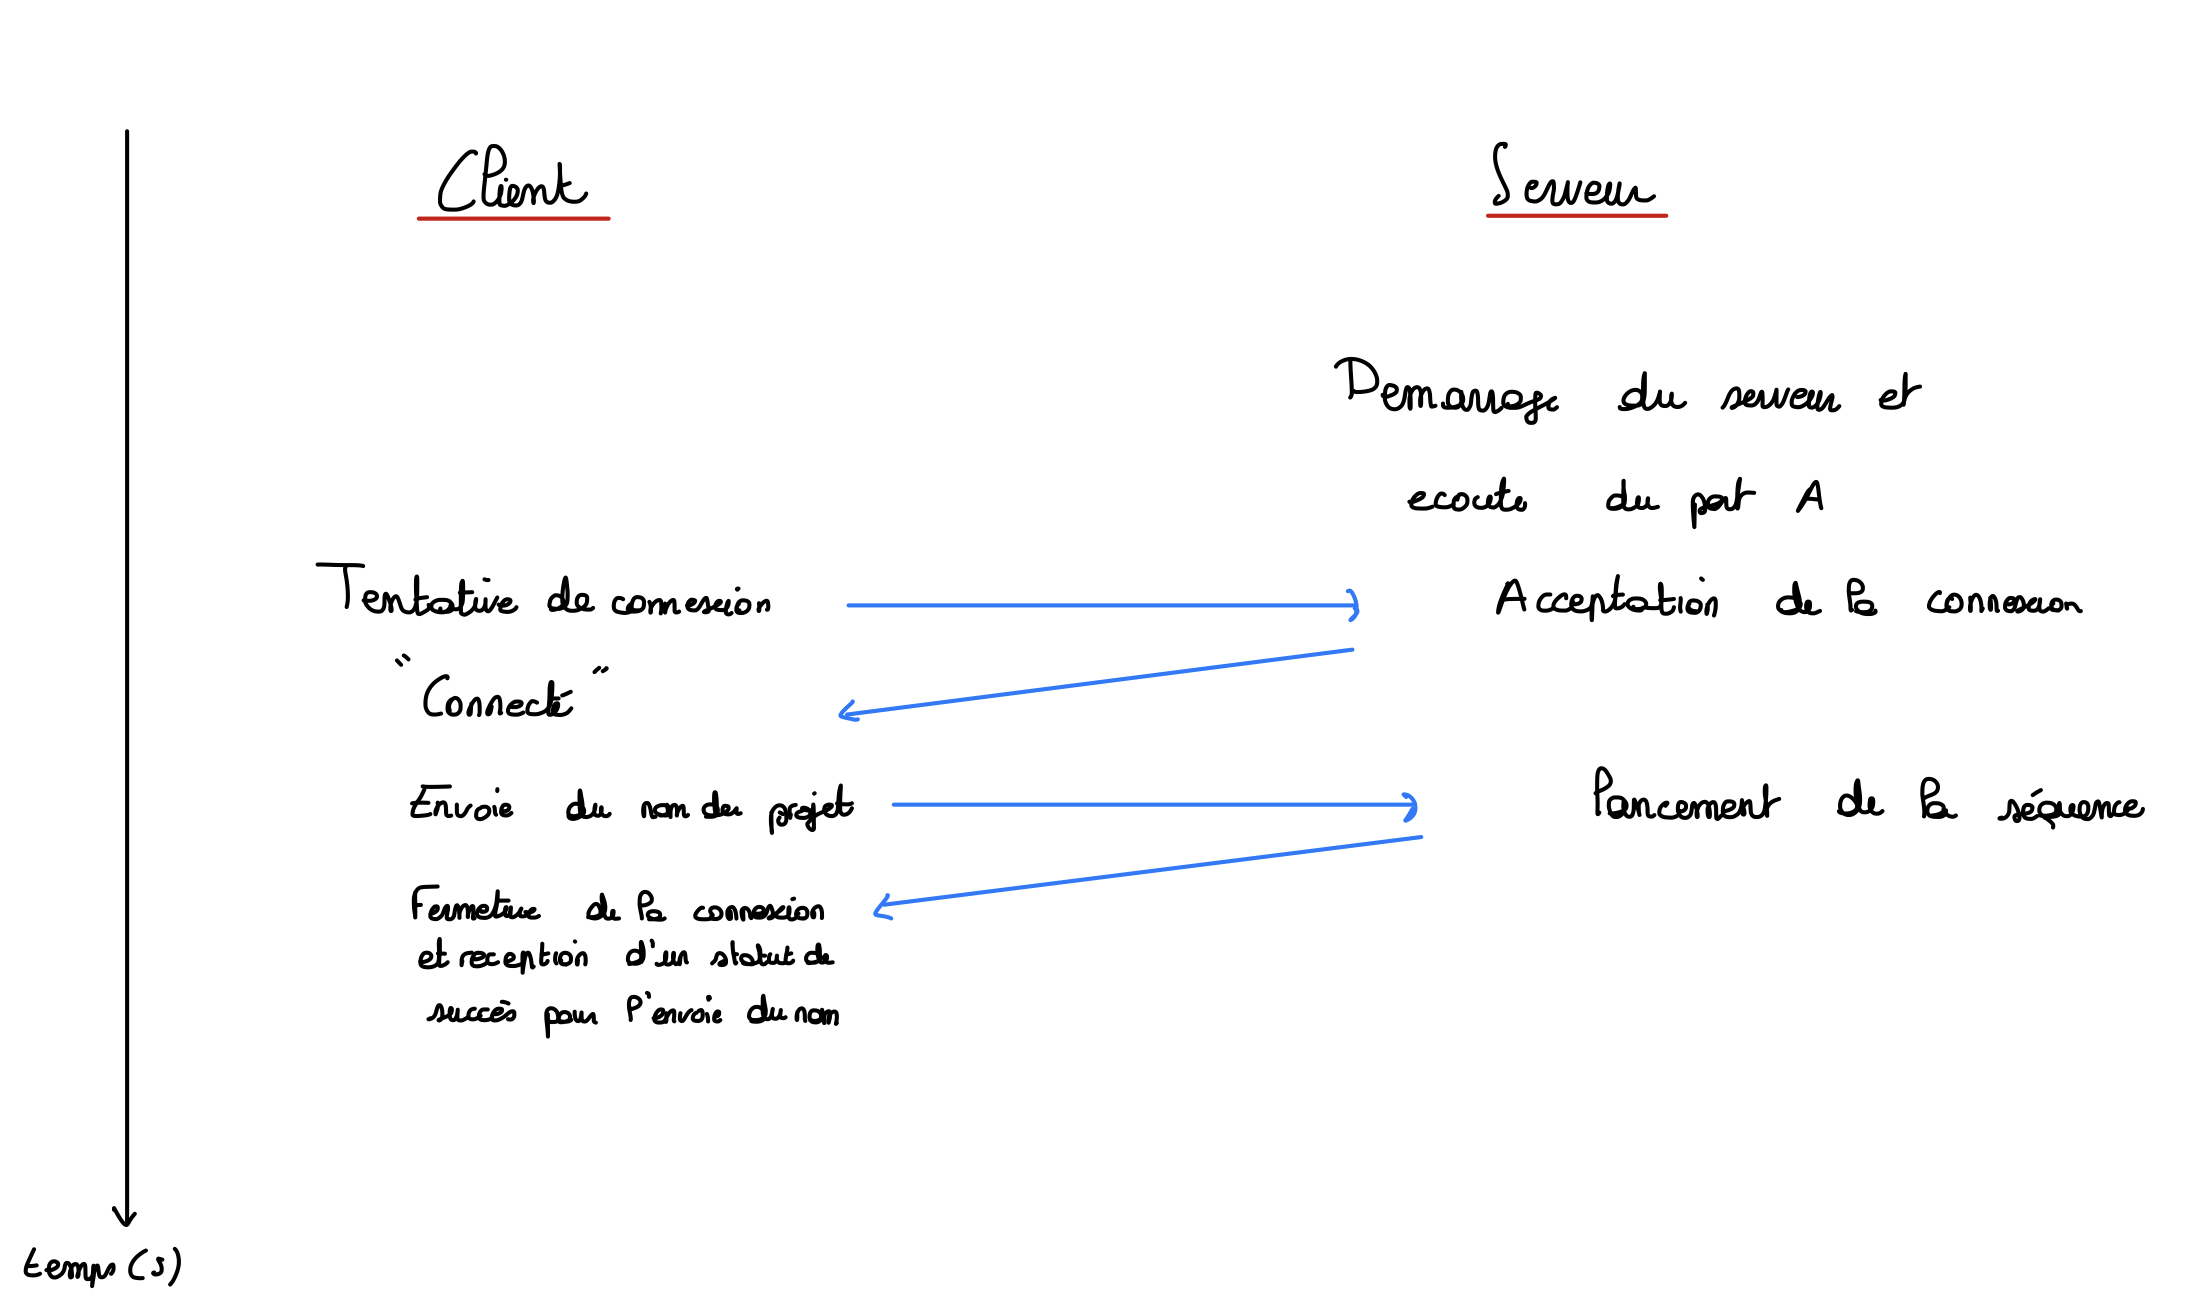 Client
Serveur
Demarrage du serveur et
ecoute du port A
Tentative de connexion
Acceptation de la connexion
"Connecté"
Envoie du nom du projet
lancement de la séquence
Fermeture de la connexion
et reception d'un statut de
succès pour l'envoie du nom
temps (s)